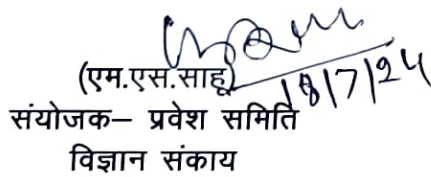 (एम.एस.साहू)
18/7/24
संयोजक– प्रवेश समिति
विज्ञान संकाय